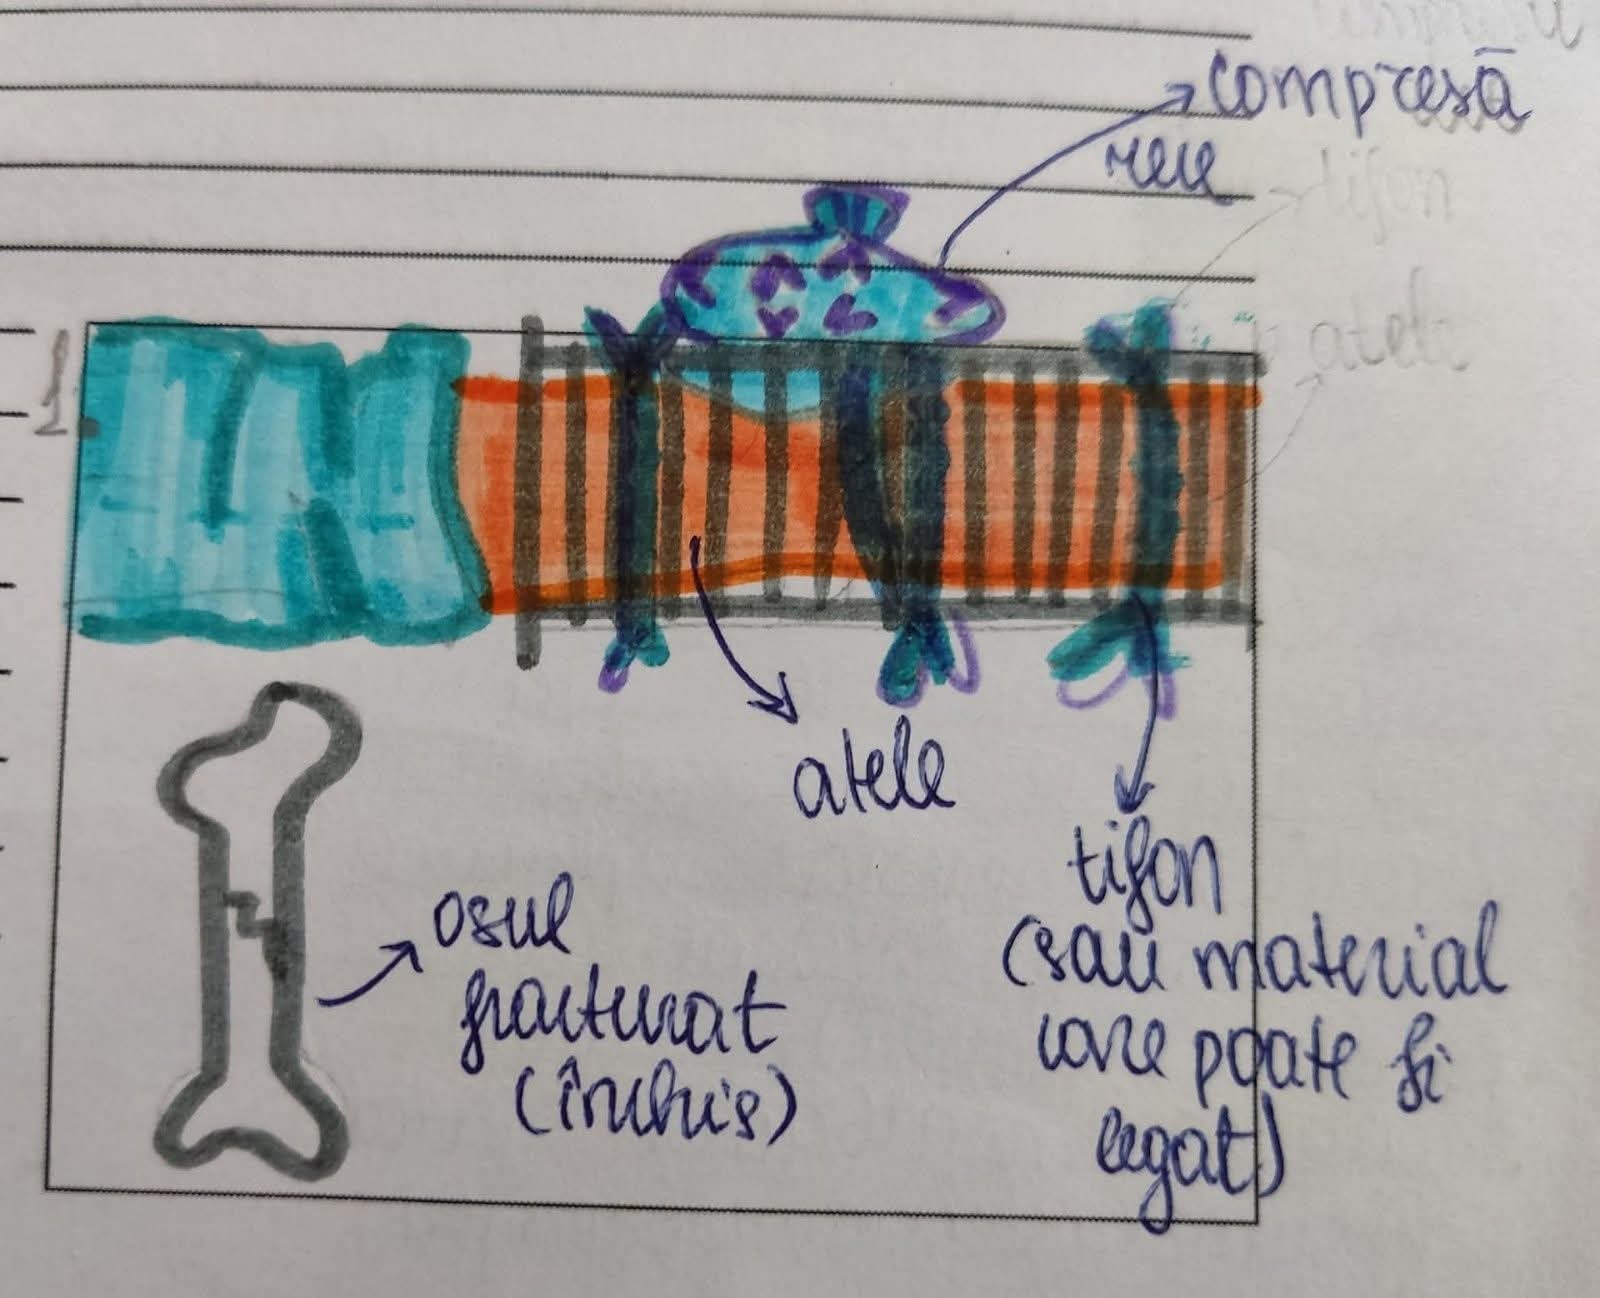 compresă
rece
tifon
atele
1
atele
tifon
(sau material
care poate fi
legat)
osul
fracturat
(închis)